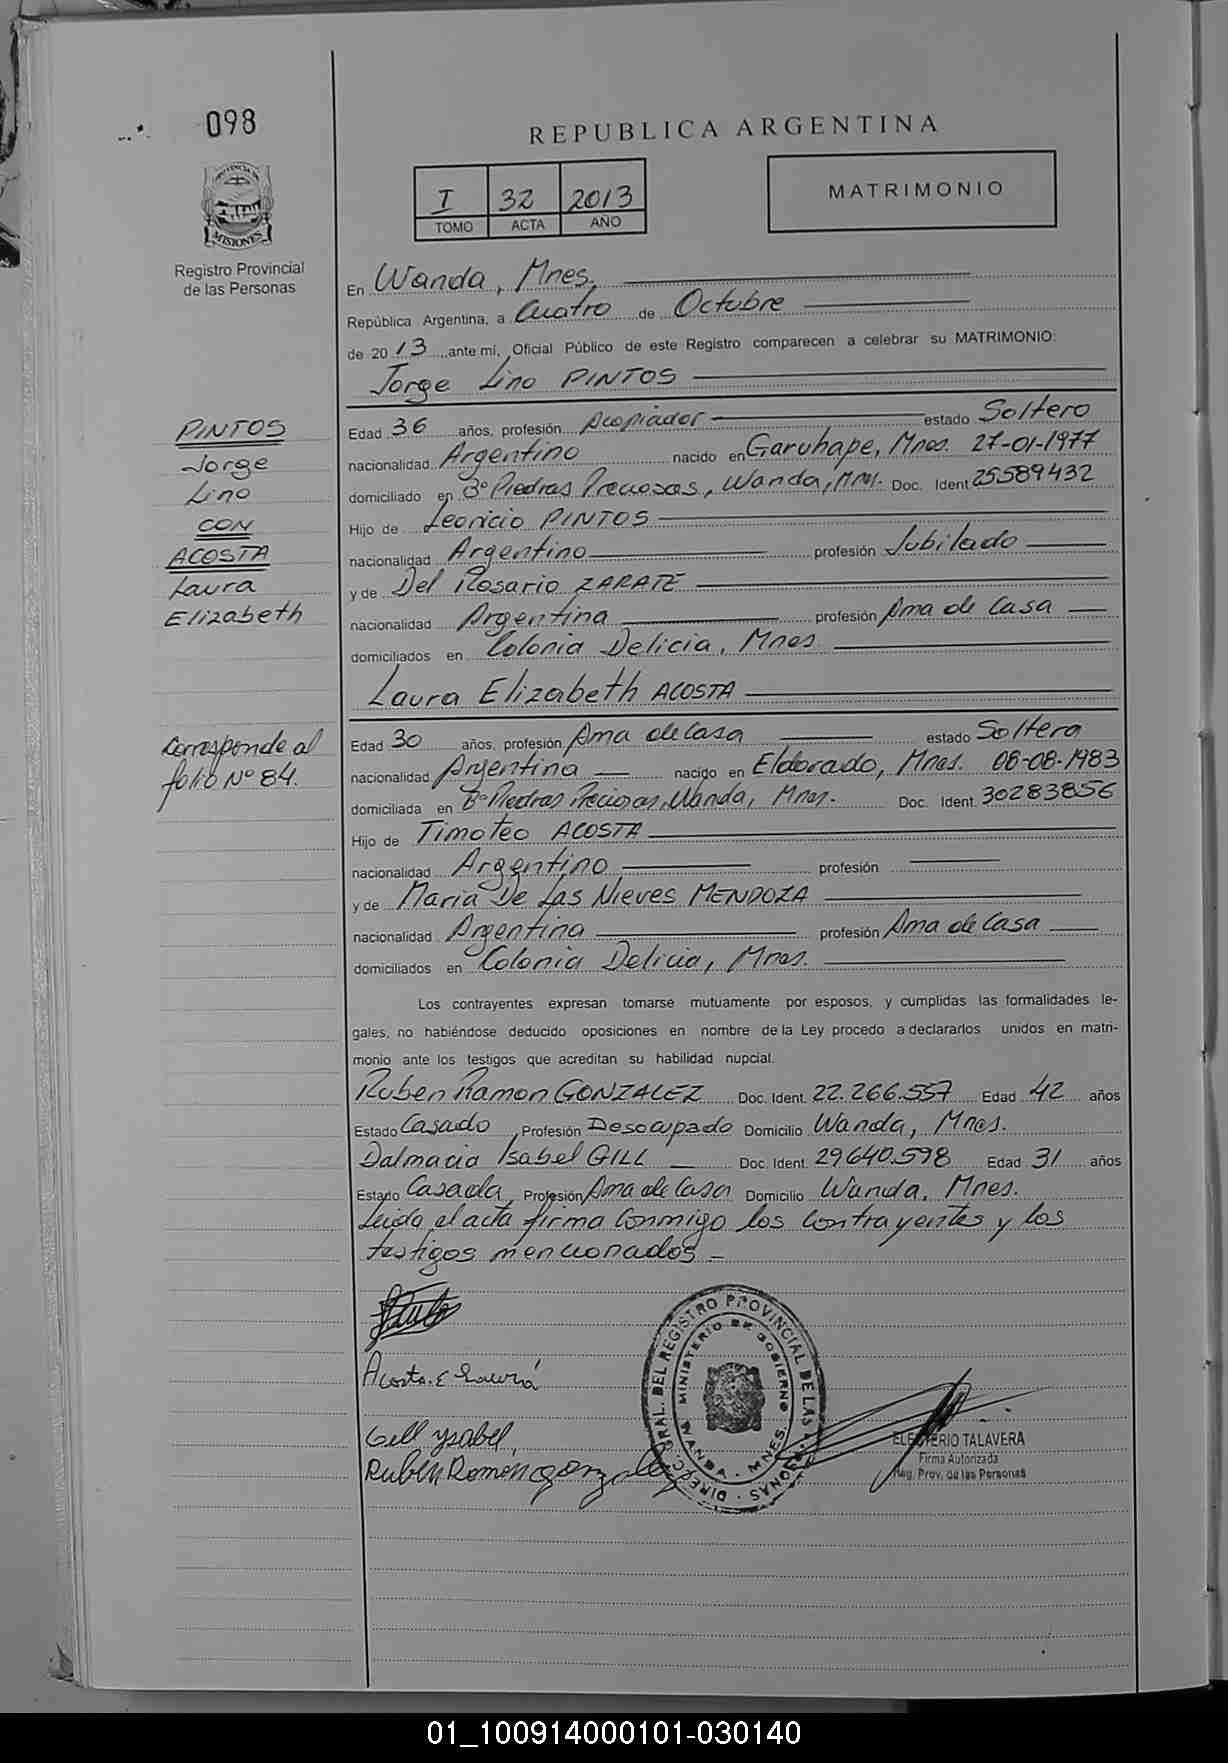 098
REPUBLICA ARGENTINA
I 32 2013
TOMO ACTA AÑO
MATRIMONIO
PROVINCIA DE
MISIONES
Registro Provincial
de las Personas
En Wanda, Mnes.
República Argentina, a Cuatro de Octubre
de 2013 ante mí, Oficial Público de este Registro comparecen a celebrar su MATRIMONIO:
Jorge Lino PINTOS
PINTOS
Jorge
Lino
CON
ACOSTA
Laura
Elizabeth
Edad 36 años, profesión Acopiador estado Soltero
nacionalidad Argentino nacido en Garuhape, Mnes. 27-01-1977
domiciliado en Bº Piedras Preciosas, Wanda, Mnes. Doc. Ident 25589432
Hijo de Leoncio PINTOS
nacionalidad Argentino profesión Jubilado
y de Del Rosario ZARATE
nacionalidad Argentina profesión Ama de Casa
domiciliados en Colonia Delicia, Mnes
Laura Elizabeth ACOSTA
Corresponde al
folio Nº 84.
Edad 30 años, profesión Ama de Casa estado Soltera
nacionalidad Argentina nacido en Eldorado, Mnes. 08-08-1983
domiciliada en Bº Piedras Preciosas, Wanda, Mnes. Doc. Ident. 30283856
Hijo de Timoteo ACOSTA
nacionalidad Argentino profesión
y de Maria De Las Nieves MENDOZA
nacionalidad Argentina profesión Ama de Casa
domiciliados en Colonia Delicia, Mnes.
Los contrayentes expresan tomarse mutuamente por esposos, y cumplidas las formalidades le-
gales, no habiéndose deducido oposiciones en nombre de la Ley procedo a declararlos unidos en matri-
monio ante los testigos que acreditan su habilidad nupcial.
Ruben Ramon GONZALEZ Doc. Ident. 22.266.557 Edad 42 años
Estado Casado Profesión Desocupado Domicilio Wanda, Mnes.
Dalmacia Isabel GILL Doc. Ident. 29640.598 Edad 31 años
Estado Casada, Profesión Ama de Casa Domicilio Wanda, Mnes.
Leida el acta firma conmigo los contrayentes y los
testigos mencionados
Acosta E Laura
Gill Ysabel,
Rubén Ramon Gonzalez
DIRECC. GRAL. DEL REGISTRO PROVINCIAL DE LAS PERSONAS
MINISTERIO DE GOBIERNO
WANDA - MNES.
ELEUTERIO TALAVERA
Firma Autorizada
Reg. Prov. de las Personas
01_100914000101-030140